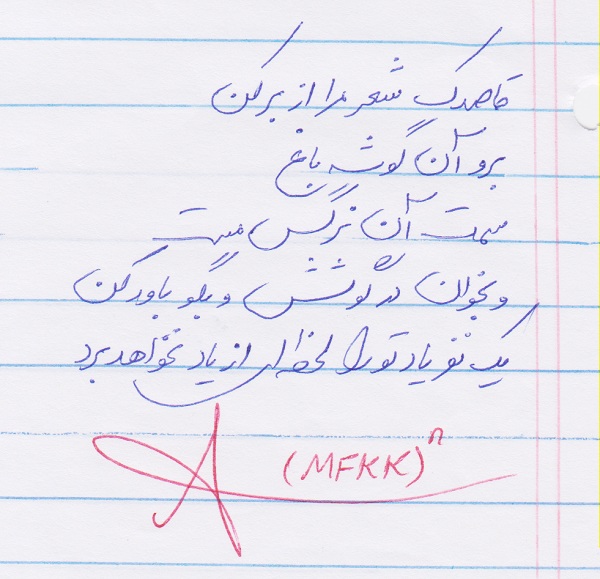 قاصدک شعر مرا از بر کن
برو آن گوشه باغ
سمت آن نرگس مست
و بخوان در گوشش و بگو باور کن
یک نفر یاد تو را لحظه ای از یاد نخواهد برد
(MFKK)ⁿ